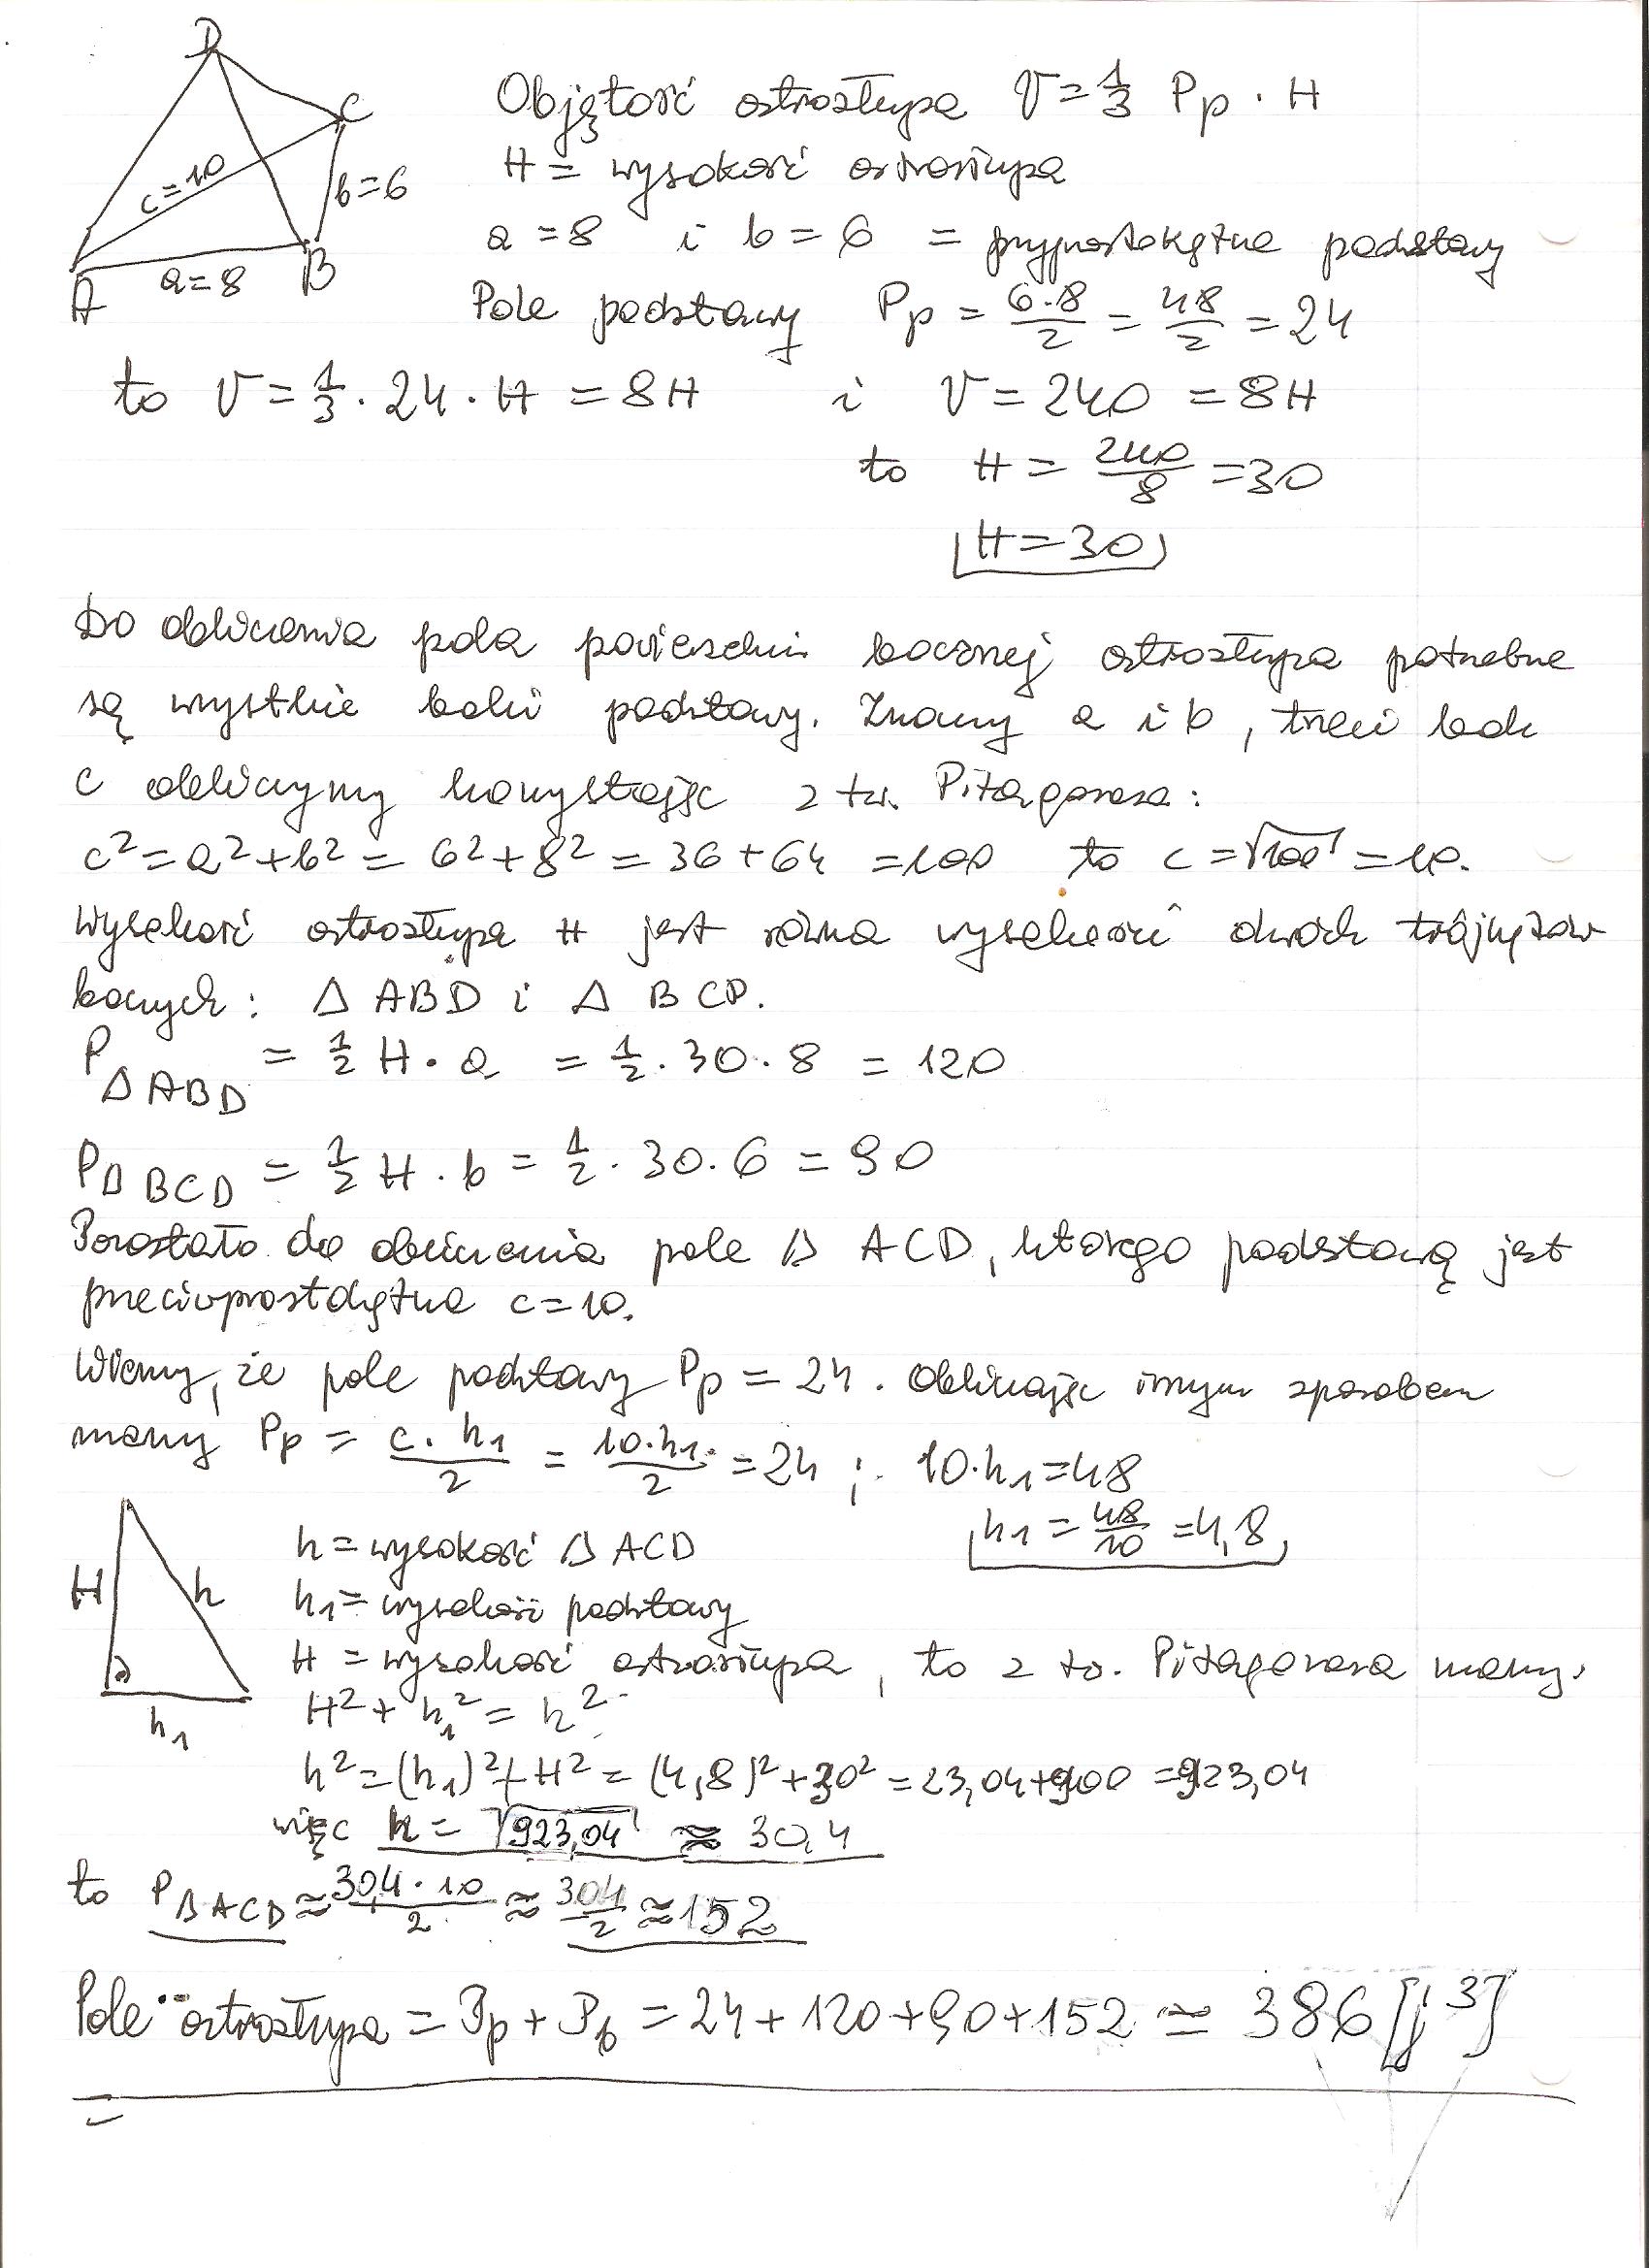 D
C
c=10
b=6
A
a=8
B
Objętość ostrosłupa V = 1/3 Pp · H
H = wysokość ostrosłupa
a = 8 i b = 6 = przyprostokątne podstawy
Pole podstawy Pp = 6·8/2 = 48/2 = 24
to V = 1/3 · 24 · H = 8H i V = 240 = 8H
to H = 240/8 = 30
H = 30
Do obliczenia pola powierzchni bocznej ostrosłupa potrzebne
są wszystkie boki podstawy. Znamy a i b, trzeci bok
c obliczymy korzystając z tw. Pitagorasa:
c² = a² + b² = 6² + 8² = 36 + 64 = 100 to c = √100 = 10.
Wysokość ostrosłupa H jest równa wysokości dwóch trójkątów
bocznych: Δ ABD i Δ BCD.
P Δ ABD = 1/2 H · a = 1/2 · 30 · 8 = 120
P Δ BCD = 1/2 H · b = 1/2 · 30 · 6 = 90
Pozostało do obliczenia pole Δ ACD, którego podstawą jest
przeciwprostokątna c = 10.
Wiemy, że pole podstawy Pp = 24. Obliczając innym sposobem
mamy Pp = c · h1/2 = 10·h1/2 = 24 ; 10·h1 = 48
h1 = 48/10 = 4,8
H
h
h1
h = wysokość Δ ACD
h1 = wysokość podstawy
H = wysokość ostrosłupa, to z tw. Pitagorasa mamy:
H² + h1² = h²
h² = (h1)² + H² = (4,8)² + 30² = 23,04 + 900 = 923,04
więc h = √923,04 ≈ 30,4
to P Δ ACD ≈ 30,4 · 10/2 ≈ 304/2 ≈ 152
Pole ostrosłupa = Pp + Pb = 24 + 120 + 90 + 152 ≃ 386 [j³]